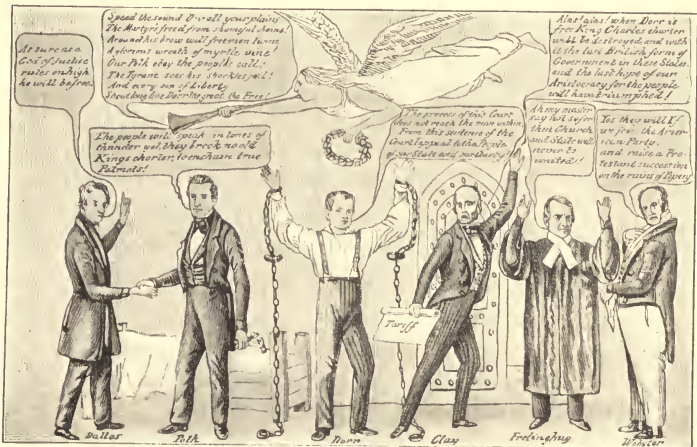 As sure as a
God of Justice
rules on high
he will be free.
Speed the sound O'er all your plains
The Martyr's freed from shameful chains.
Around his brow will freemen twine
A glorious wreath of myrtle vine!
Our Polk obey the people's call:
The Tyrant sees his shackles fall!
And every son of Liberty
Shout long live Dorr the great the Free!
The people will speak in tones of
thunder yet, they brook no old
Kings charter, to enchain true
Patriots!
The process of this Court
does not reach the man within,
From this sentence of the
Court I appeal to the People
of our State and our Country
Alas! alas! when Dorr is
free King Charles charter
will be destroyed, and with
it the last British form of
Government in these States,
and the last hope of our
Aristocracy for the people
will have triumphed!
Ah my master
say not so for
then Church
and State will
never be
united!
Yes they will If
we join the Amer-
ican Party.
and raise a Pro-
testant succession
on the ruins of Popery
Tariff
Dallas
Polk
Dorr
Clay
Frelinghuy
Webster